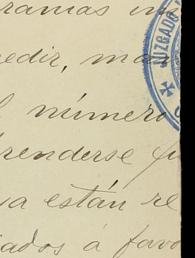 edir, ma
l número
renderse
a están re
ados á favo
JUZGADO